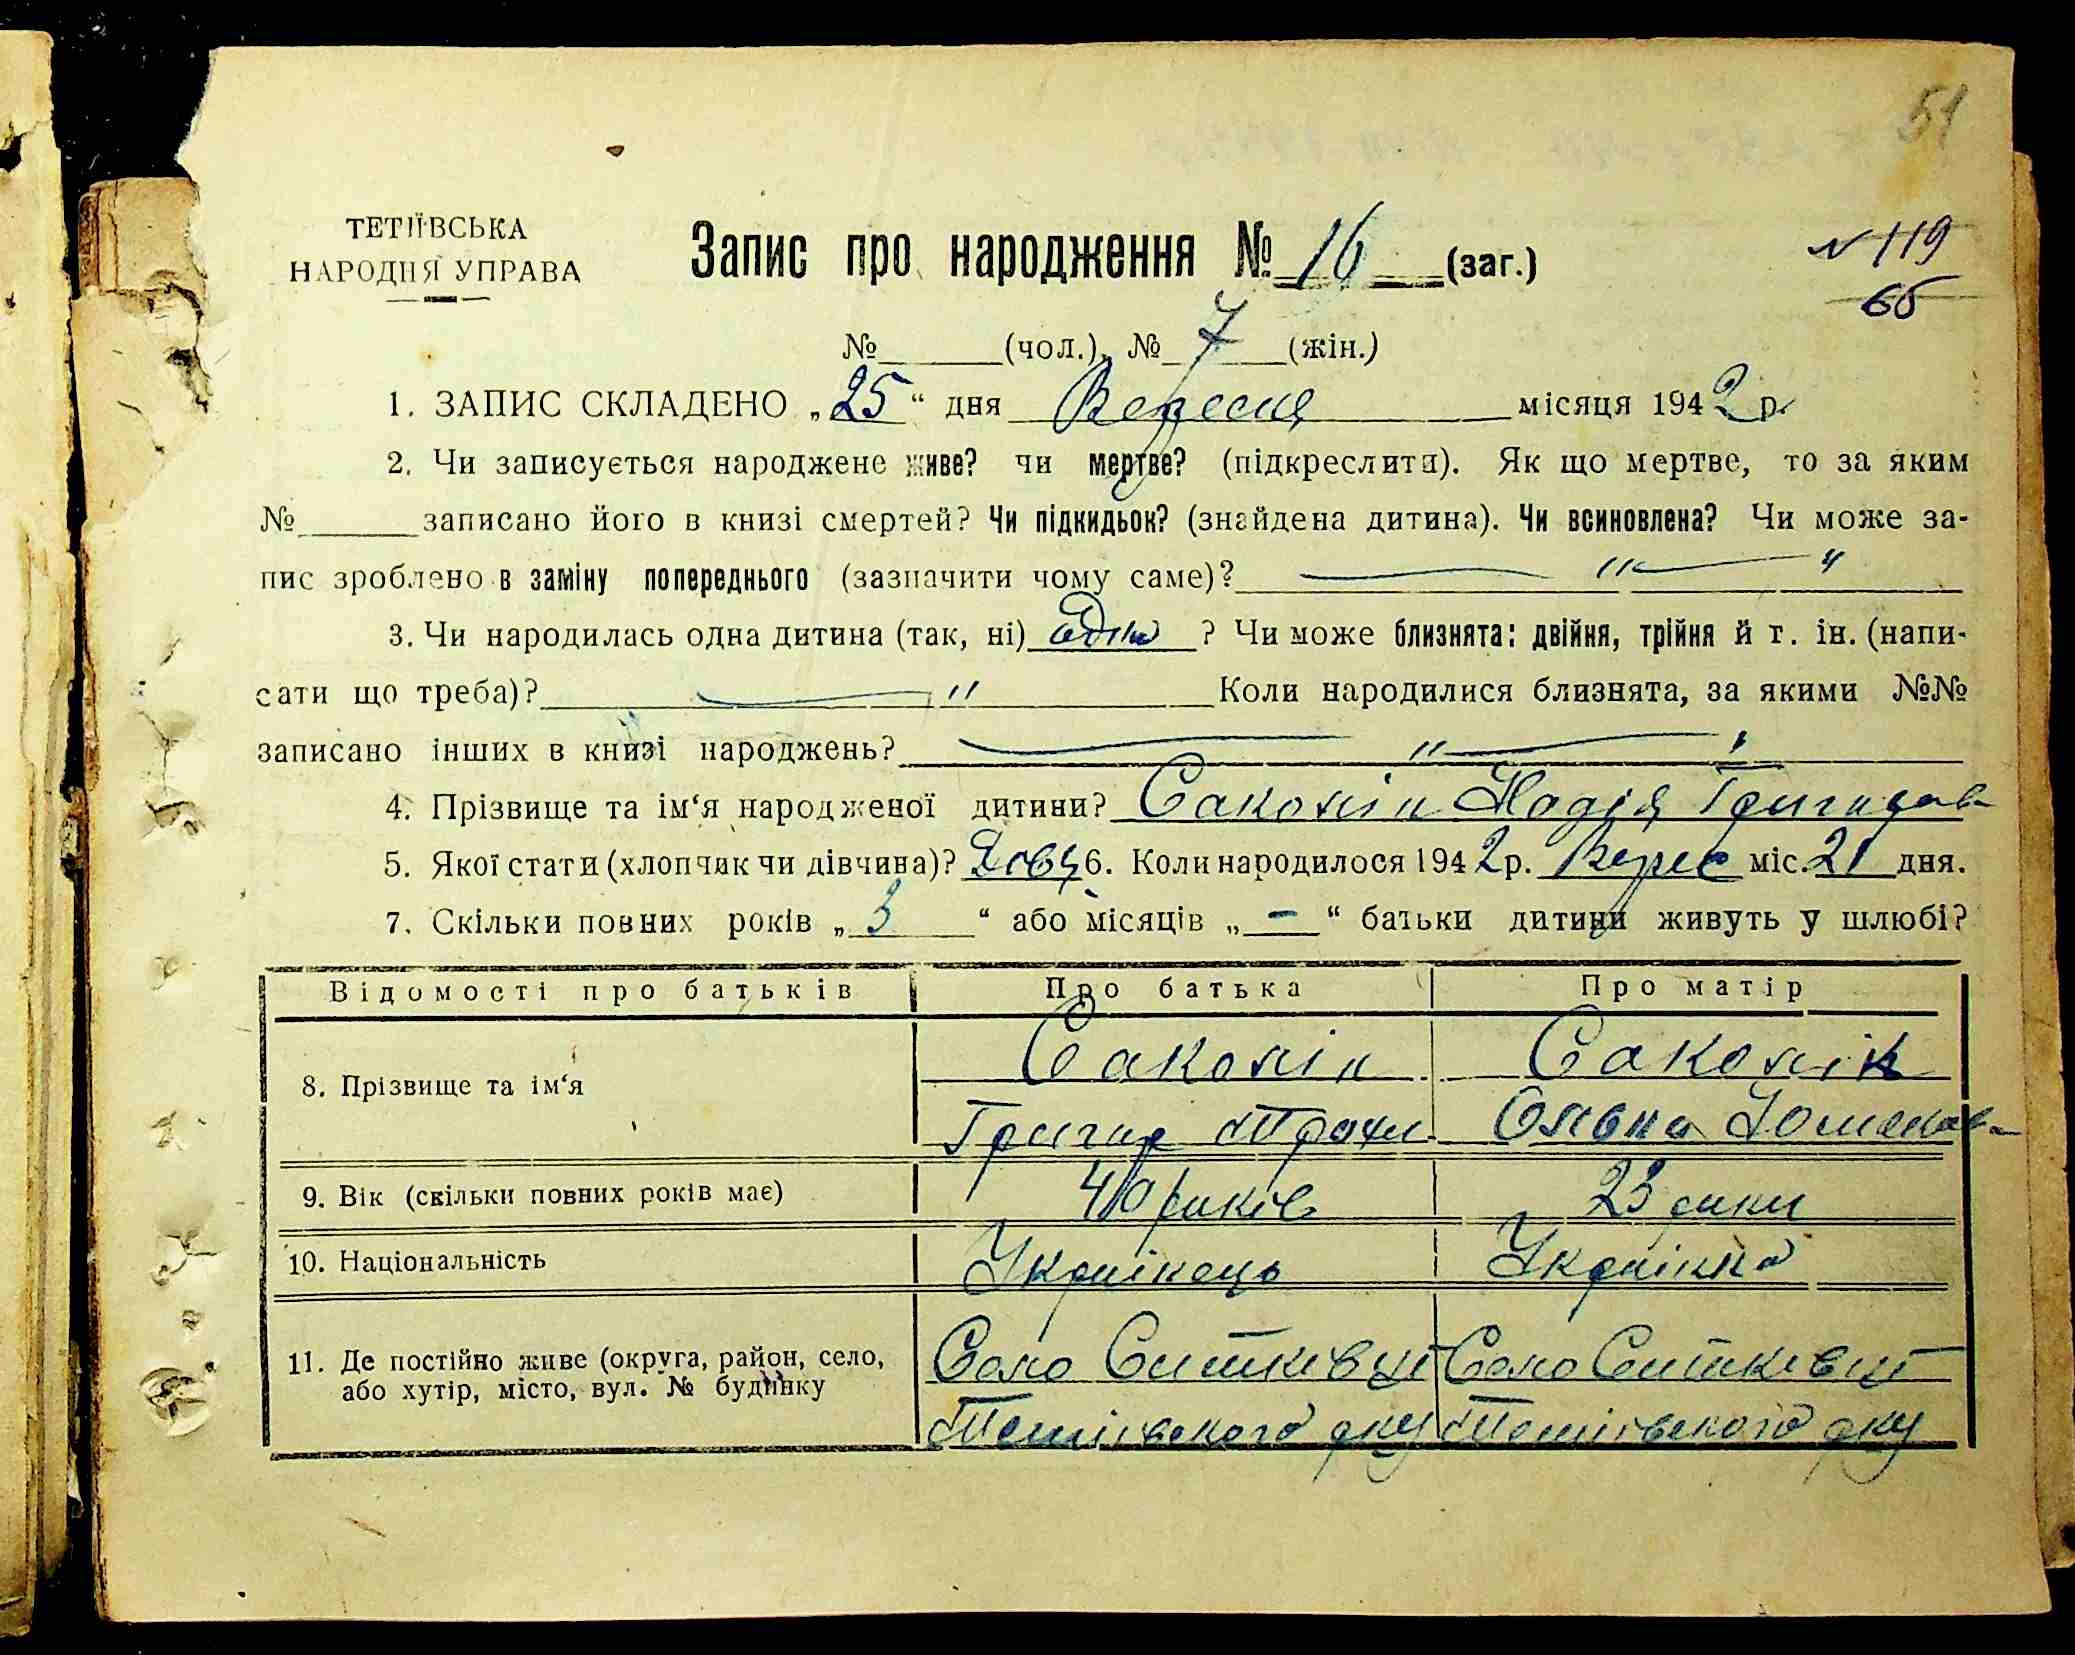 51
ТЕТІЇВСЬКА
НАРОДНЯ УПРАВА
Запис про народження № 16 (заг.)
N 119
65
№ (чол.), № 7 (жін.)
1. ЗАПИС СКЛАДЕНО „25“ дня Вересня місяця 1942 р.
2. Чи записується народжене живе? чи мертве? (підкреслити). Як що мертве, то за яким
№ записано його в книзі смертей? Чи підкидьок? (знайдена дитина). Чи всиновлена? Чи може за-
пис зроблено в заміну попереднього (зазначити чому саме)? — " — "
3. Чи народилась одна дитина (так, ні) одна ? Чи може близнята: двійня, трійня й т. ін. (напи-
сати що треба)? — " Коли народилися близнята, за якими №№
записано інших в книзі народжень? — " — "
4. Прізвище та ім‘я народженої дитини? Саколік Надія Григоров-
5. Якої стати (хлопчик чи дівчина)? Дівч 6. Коли народилося 1942 р. Верес міс. 21 дня.
7. Скільки повних років „3“ або місяців „—“ батьки дитини живуть у шлюбі?
Відомості про батьків Про батька Про матір
8. Прізвище та ім‘я Саколік Саколік
Григор Трохи Ольна
9. Вік (скільки повних років має) 40 років 23 роки
10. Національність Українець Українка
11. Де постійно живе (округа, район, село, Село Ситківці Село Ситківці
або хутір, місто, вул. № будинку Тетіївського рну Тетіївського рну